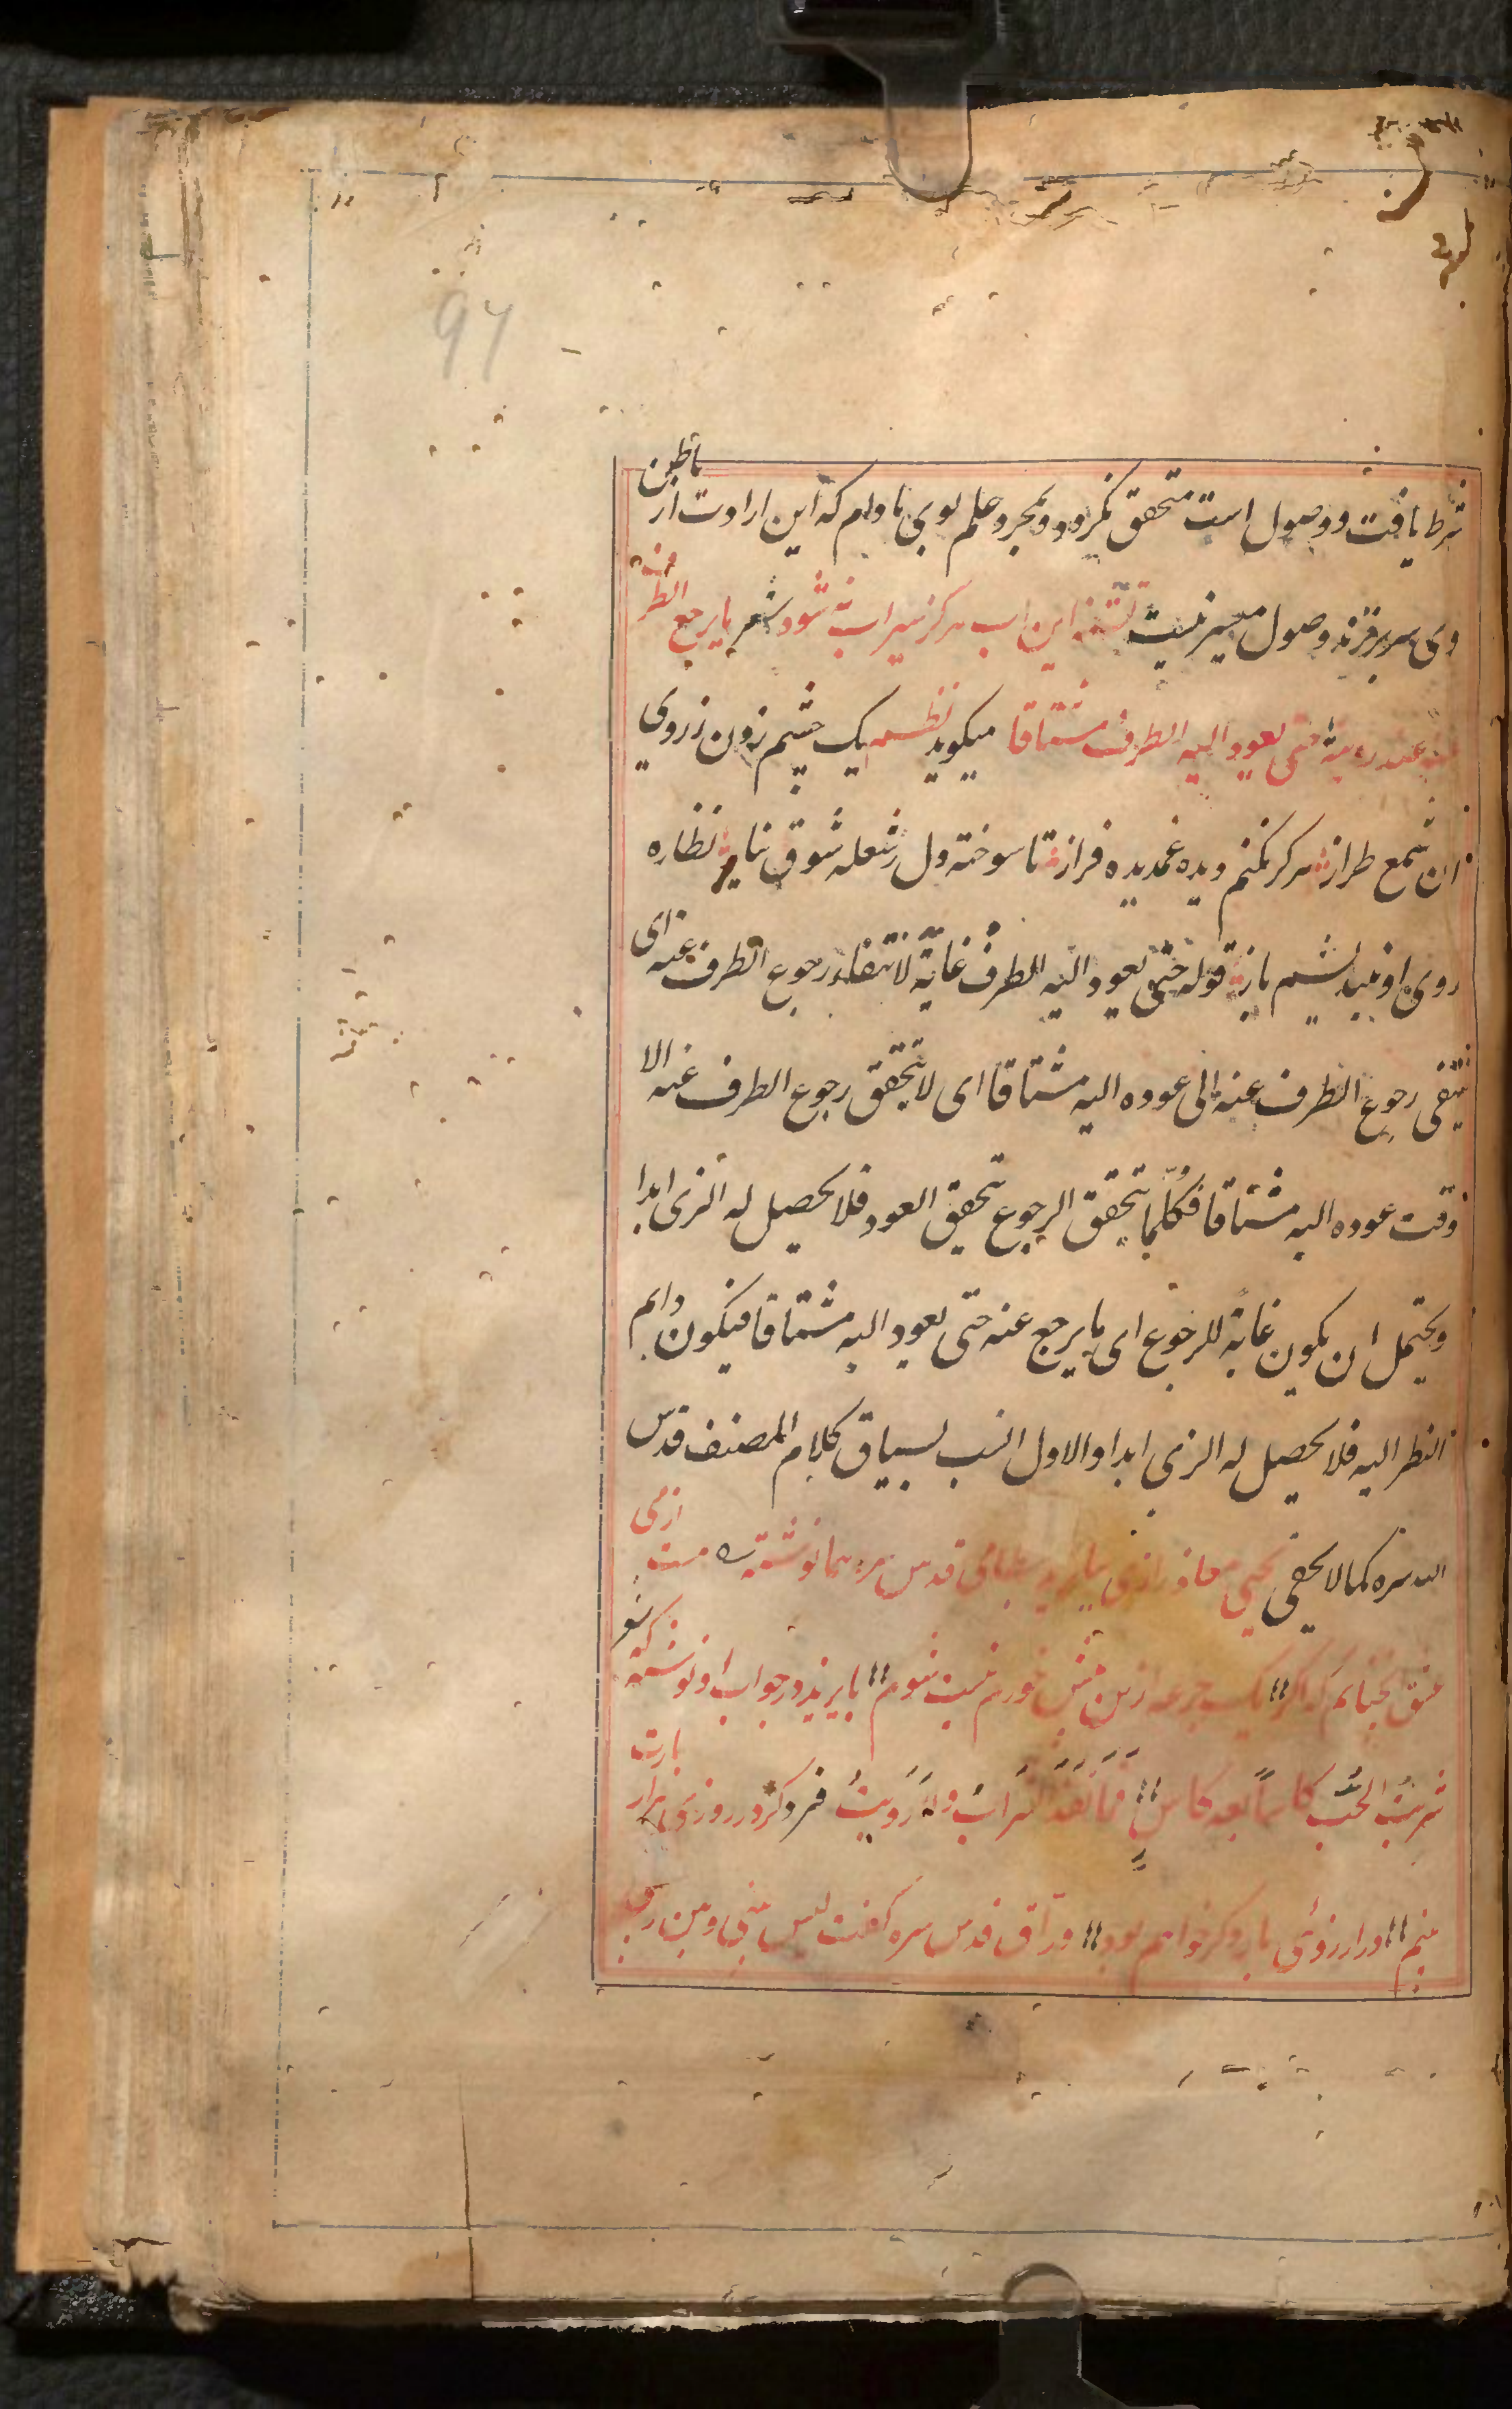 97
شرط یافت و وصول است متحقق نکردد و بمجرد علم لوبی مادام که این ارادت از باطن
وی سر بر نزند وصول میسر نیست تشنه این اب هرکز سیراب نه شود شعر ما یرجع الطرف
عنه عند رویته حتی یعود الیه الطرف مشتاقا میکوید نظم یک چشم زدن ز روی
ان شمع طراز هرکز نکنم دیده غمدیده فراز تا سوخته دل ز شعله شوق نیاز نظاره
روی او نیندیشم باز قوله حتی یعود الیه الطرف غایة لانتفاء رجوع الطرف عنه ای
ینتفی رجوع الطرف عنه الی عوده الیه مشتاقا ای لا یتحقق رجوع الطرف عنه الا
وقت عوده الیه مشتاقا فکلّما یتحقق الرجوع تحقیق العود فلا یحصیل له الزی ابدا
ویحتمل ان یکون غایة للرجوع ای ما یرجع عنه حتی یعود الیه مشتاقا فیکون دایم
النظر الیه فلا یحصیل له الزی ابدا والاول انسب لسیاق کلام المصنف قدس
الله سره کما لا یخفی یحیی معاذ رازی ببایزید بسطامی قدس سرهما نوشته که مست ازمی
عشق انچنانم که اکر یک جرعه ازین بیش خورم نیست شوم بایزید در جواب او نوشته که شعر
شربتُ الحُبَّ کاساً بعد کاسٍ فما نَفَدَ الشرابُ ولا رَوِیتُ فرد کر در روزی هزار بارت
بینم در ارزوی بار دکر خواهم بود ورّاق قدس سره کفت لیس بینی وبین ربی